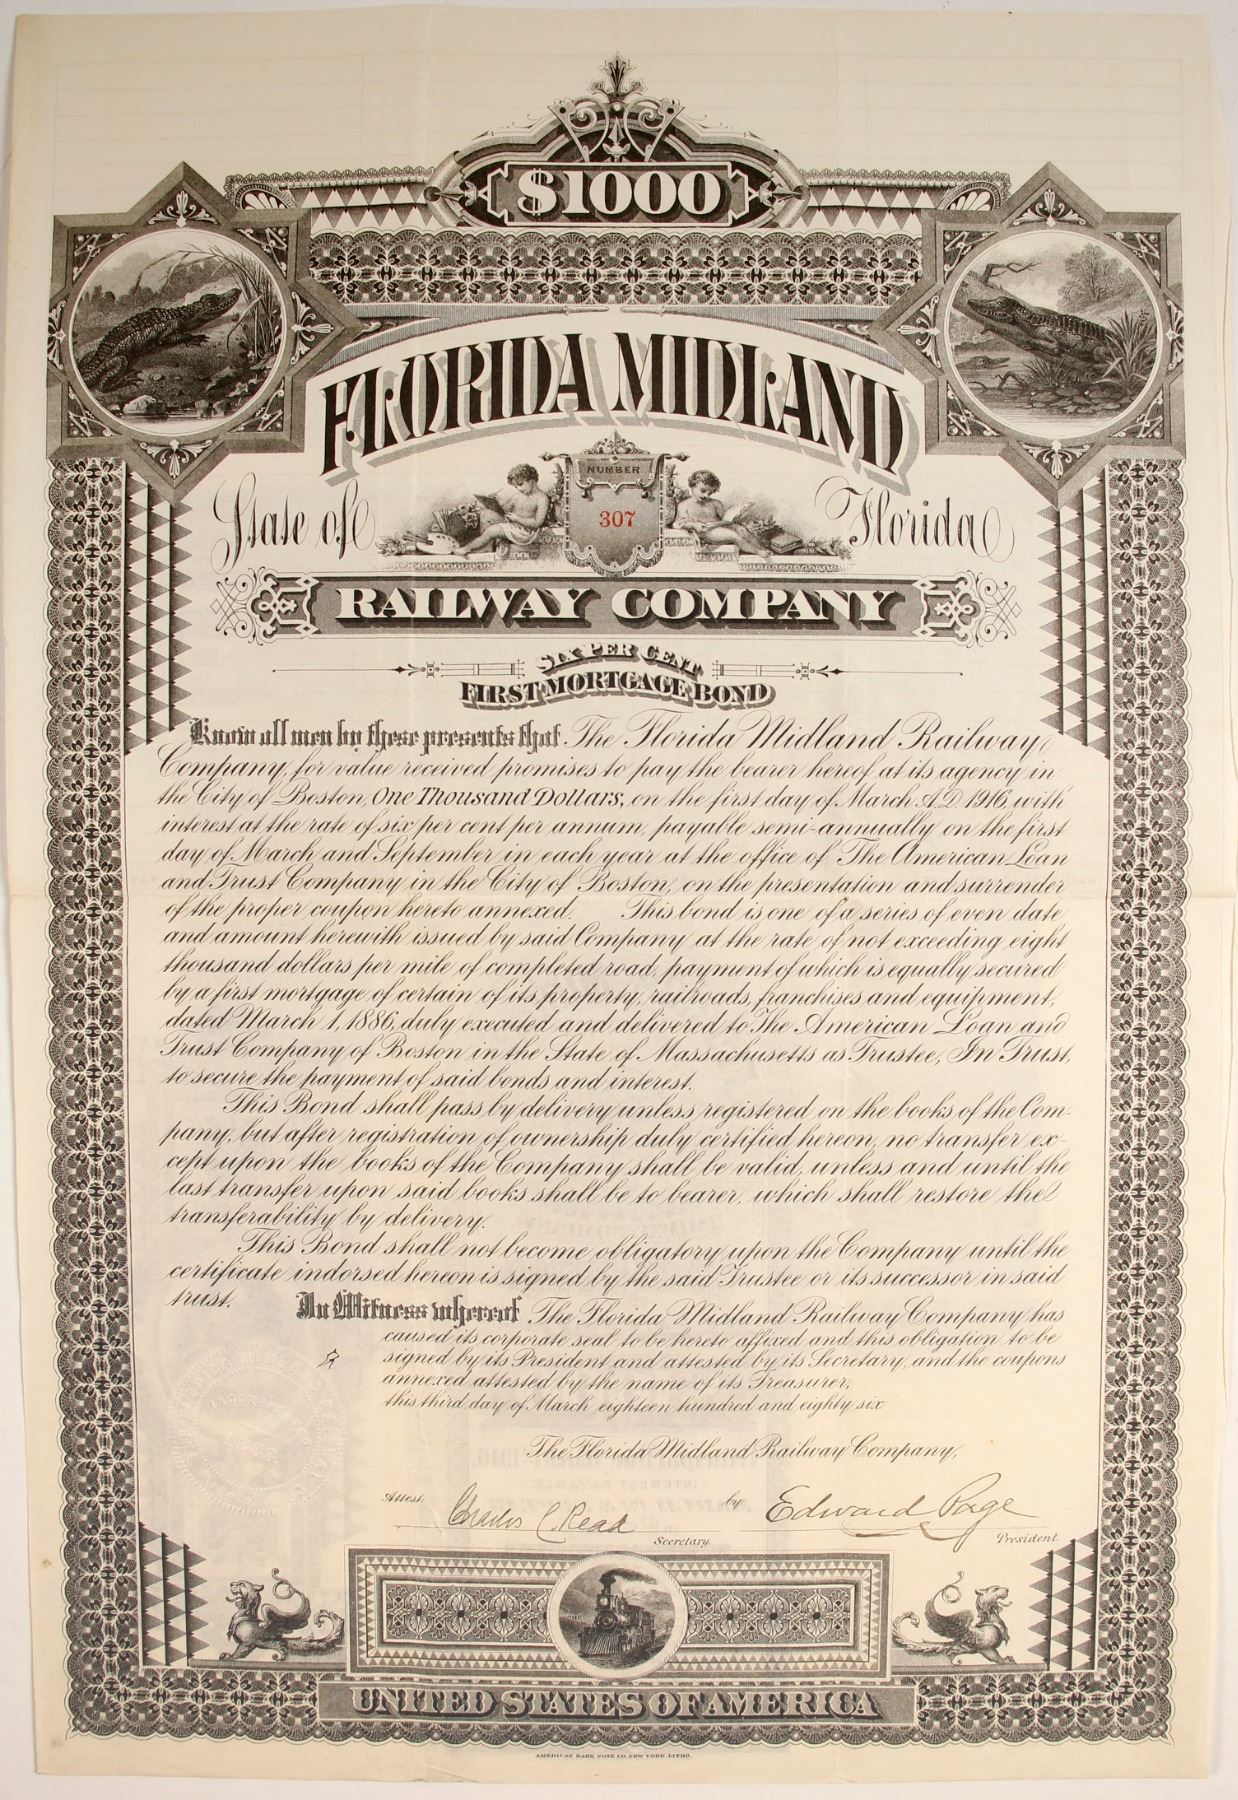 $1000
FLORIDA MIDLAND
NUMBER
307
State of Florida
RAILWAY COMPANY
SIX PER CENT
FIRST MORTGAGE BOND
Know all men by these presents that The Florida Midland Railway
Company, for value received promises to pay the bearer hereof at its agency in
the City of Boston, One Thousand Dollars, on the first day of March A.D. 1916, with
interest at the rate of six per cent per annum, payable semi-annually on the first
day of March and September in each year at the office of The American Loan
and Trust Company in the City of Boston, on the presentation and surrender
of the proper coupon hereto annexed. This bond is one of a series of even date
and amount herewith issued by said Company at the rate of not exceeding eight
thousand dollars per mile of completed road, payment of which is equally secured
by a first mortgage of certain of its property, railroads, franchises and equipment,
dated March 1, 1886, duly executed and delivered to The American Loan and
Trust Company of Boston in the State of Massachusetts as Trustee, In Trust,
to secure the payment of said bonds and interest.
This Bond shall pass by delivery unless registered on the books of the Com-
pany, but after registration of ownership duly certified hereon, no transfer ex-
cept upon the books of the Company shall be valid, unless and until the
last transfer upon said books shall be to bearer, which shall restore the
transferability by delivery.
This Bond shall not become obligatory upon the Company until the
certificate indorsed hereon is signed by the said Trustee or its successor in said
trust. In Witness whereof The Florida Midland Railway Company has
caused its corporate seal to be hereto affixed and this obligation to be
signed by its President and attested by its Secretary, and the coupons
annexed attested by the name of its Treasurer,
this third day of March eighteen hundred and eighty six
The Florida Midland Railway Company,
Attest: Charles C. Read by Edward Page
Secretary. President.
UNITED STATES OF AMERICA
AMERICAN BANK NOTE CO. NEW YORK. LITHO.